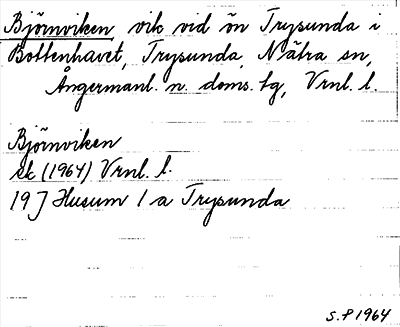 Björnviken, vik vid ön Trysunda i
Bottenhavet, Trysunda, Nätra sn,
Ångermanl. n. doms. tg, Vrnl. l.
Björnviken
ek (1964) Vrnl. l.
19 J Husum 1 a Trysunda
S.P 1964